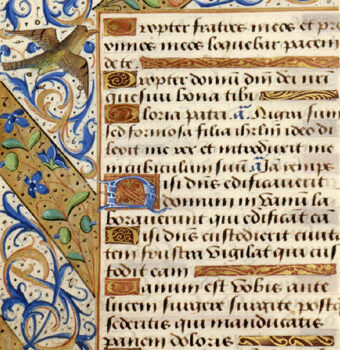 Propter fratres meos et pro
ximos meos loquebar pacem
de te
Propter domū dn̄i dei nr̄i
quesiui bona tibi
Gloria patri. an̄. Nigra sum
sed formosa filia ihrl̄m ideo di
lexit me rex et introduxit me
in cubiculum suum an̄
Nisi dn̄s edificauerit
domum in vanum la
borauerunt qui edificāt eā
Nisi dn̄s custodierit ciuita
tem frustra vigilat qui cus
todit eam
Vanum est vobis ante
lucem surgere surgite postq̄
sederitis qui manducatis
panem doloris